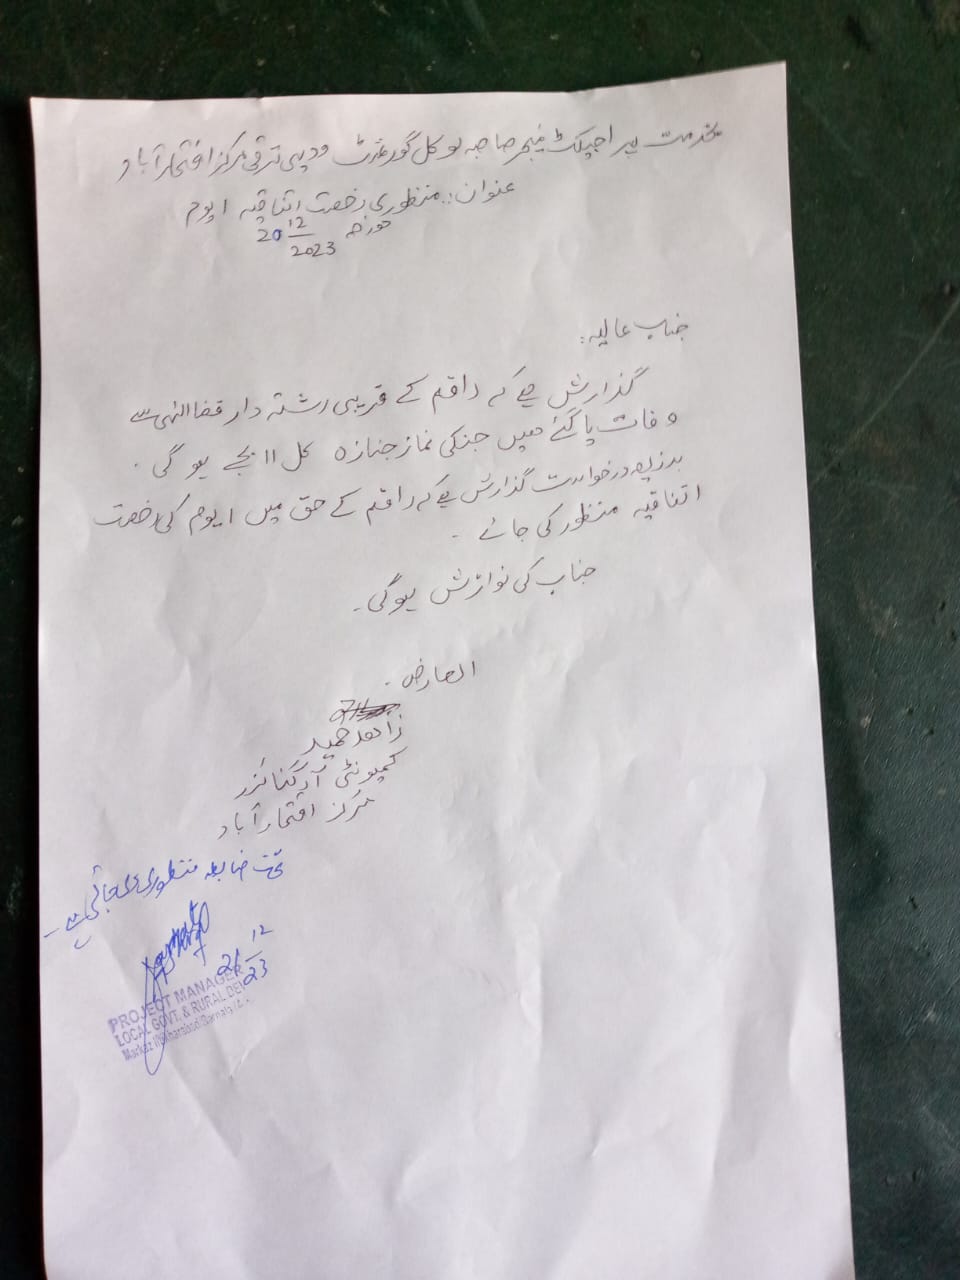 بخدمت پراجیکٹ منیجر صاحبہ لوکل گورنمنٹ و دیہی ترقی مرکز افتخار آباد
عنوان: منظوری رخصت اتفاقیہ 1 یوم
مورخہ 20 12 2023
جناب عالیہ:
گذارش ہے کہ راقم کے قریبی رشتہ دار قضا الہی سے
وفات پا گئے ہیں جنکی نماز جنازہ کل 11 بجے ہو گی ۔
بذریعہ درخواست گذارش ہے کہ راقم کے حق میں 1 یوم کی رخصت
اتفاقیہ منظور کی جائے ۔
جناب کی نوازش ہوگی ۔
العارض ۔
زاہد حمید
کمیونٹی آرگنائزر
مرکز افتخار آباد
تحت ضابطہ منظوری دی جاتی ہے ۔
21 12 23
PROJECT MANAGER
LOCAL GOVT. & RURAL DEV
Markaz Iftikharabad(Barnala)